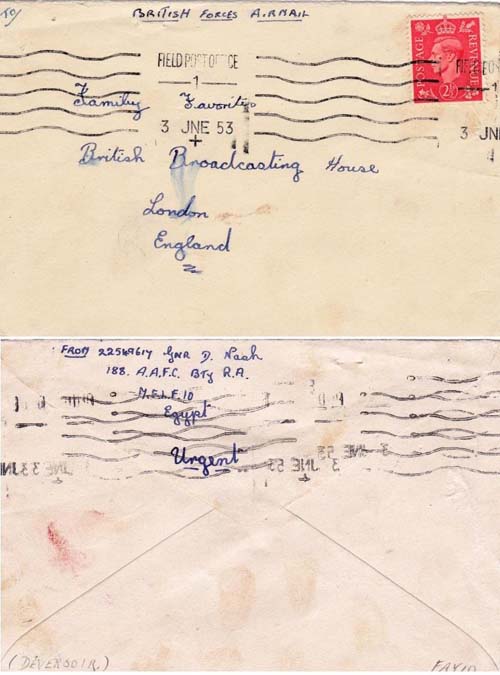 BRITISH FORCES AIRMAIL
POSTAGE REVENUE
2½
FIELD POST OFFICE
1
3 JNE 53
Family Favorites
British Broadcasting House
London
England
FROM 22549617 GNR D. Nash
188. A.A.F.C. Bty R.A.
M.E.L.F. 10
Egypt
Urgent
3 JNE 53
3 JNE 53
(DEVERSOIR.)
FAYID